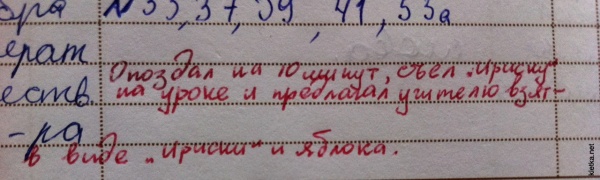 ра № 35, 37, 39, 41, 53а
ерат
Опоздал на 10 минут, съел „Ириску"
еств. на уроке и предлагал учителю взят-
-ра
в виде „Ириски" и яблока.
kletka.net